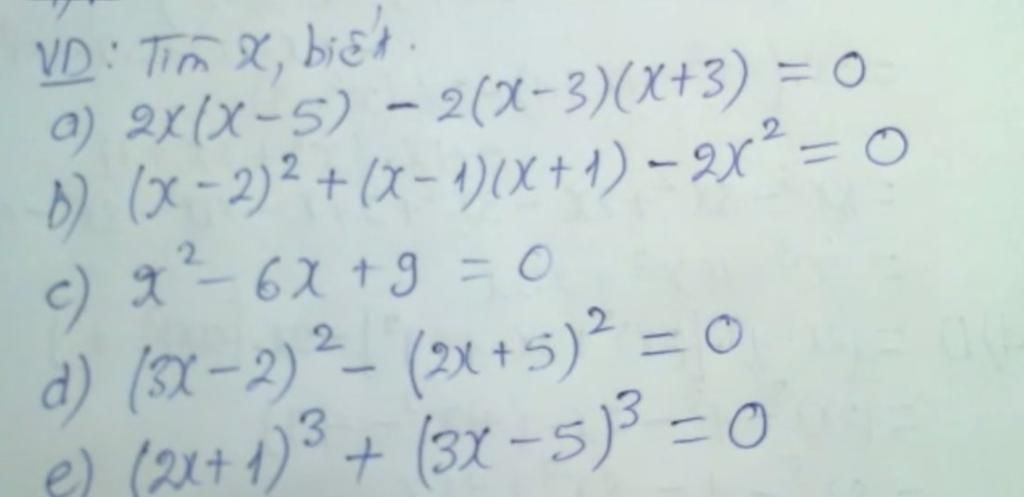 VD: Tìm x, biết.
a) 2x(x-5) - 2(x-3)(x+3) = 0
b) (x-2)² + (x-1)(x+1) - 2x² = 0
c) x² - 6x + 9 = 0
d) (3x-2)² - (2x+5)² = 0
e) (2x+1)³ + (3x-5)³ = 0